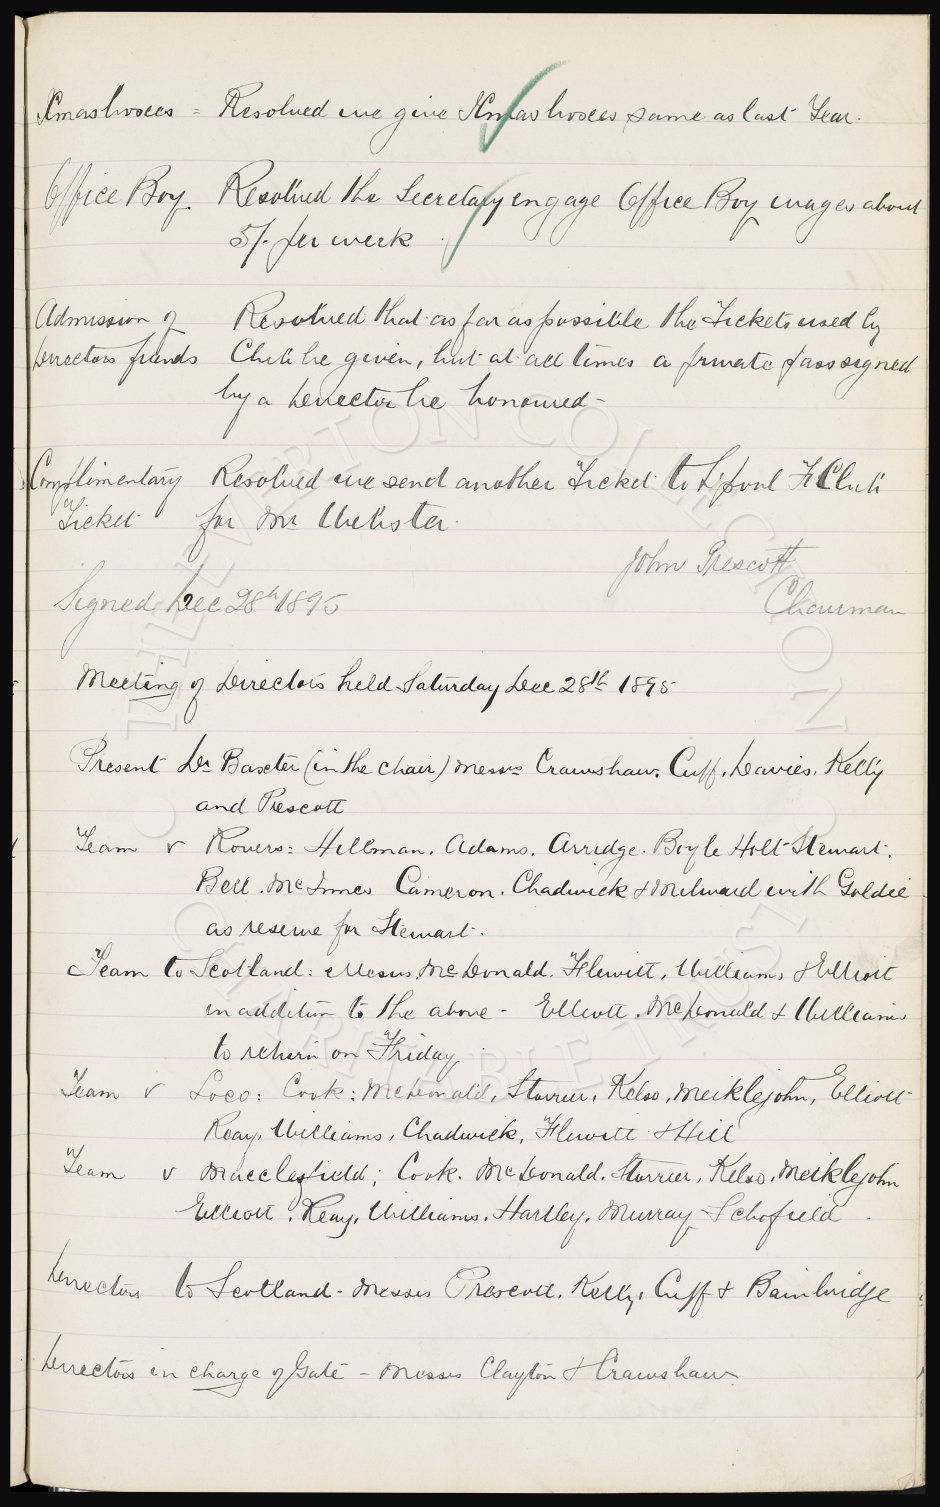 Xmas boxes = Resolved we give Xmas boxes same as last Year.
Office Boy. Resolved the Secretary engage Office Boy wages about
5/- per week
Admission of Resolved that as far as possible the Tickets used by
Directors friends Club be given, but at all times a private pass signed
by a Director be honoured -
Complimentary Resolved we send another Ticket to L'pool F Club
Ticket for Mr Webster.
John Prescott
Signed Dec 28th 1895 Chairman
Meeting of Directors held Saturday Dec 28th 1895
Present Dr Baxter (in the chair) Messrs Crawshaw, Cuff, Davies, Kelly
and Prescott
Team v Rovers: Hillman. Adams. Arridge. Boyle Holt Stewart.
Bell. McInnes Cameron. Chadwick & Milward with Goldie
as reserve for Stewart.
Team to Scotland: Messrs McDonald. Flewitt, Williams & Elliott
in addition to the above - Elliott. McDonald & Williams
to return on Friday
Team v Loco: Cook: McDonald, Storrier, Kelso, Meiklejohn, Elliott
Reay, Williams, Chadwick, Flewitt & Hill
Team v Macclesfield; Cook. McDonald. Storrier, Kelso, Meiklejohn
Elliott, Reay, Williams, Hartley, Murray Schofield
Directors to Scotland - Messrs Prescott, Kelly, Cuff & Bainbridge
Directors in charge of Gate - Messrs Clayton & Crawshaw.
THE EVERTON COLLECTION CHARITABLE TRUST